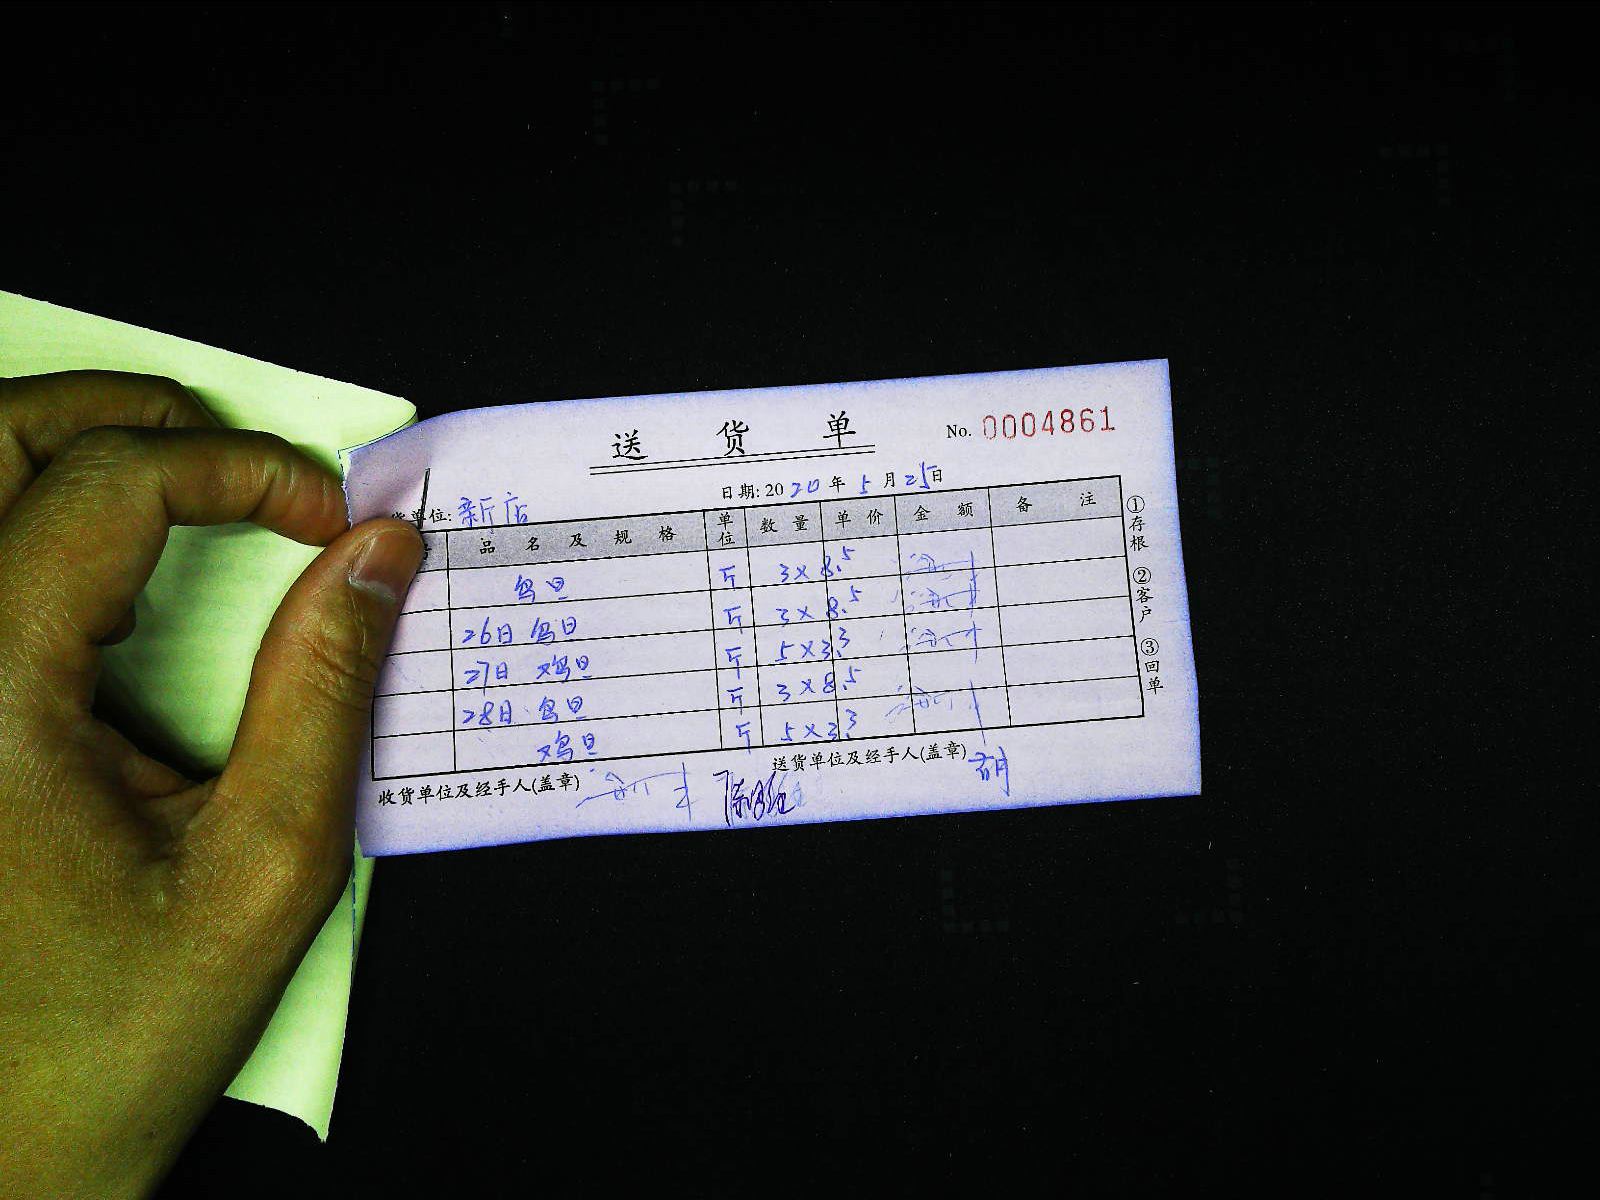 送货单
No. 0004861
日期: 2020年5月25日
货单位: 新店
号 品名及规格 单位 数量 单价 金额 备注
鸟旦 斤 3×8.5
26日 鸟旦 斤 3×8.5
27日 鸡旦 斤 5×3.3
28日 鸟旦 斤 3×8.5
鸡旦 斤 5×3.3
收货单位及经手人(盖章)
送货单位及经手人(盖章) 胡
①存根 ②客户 ③回单